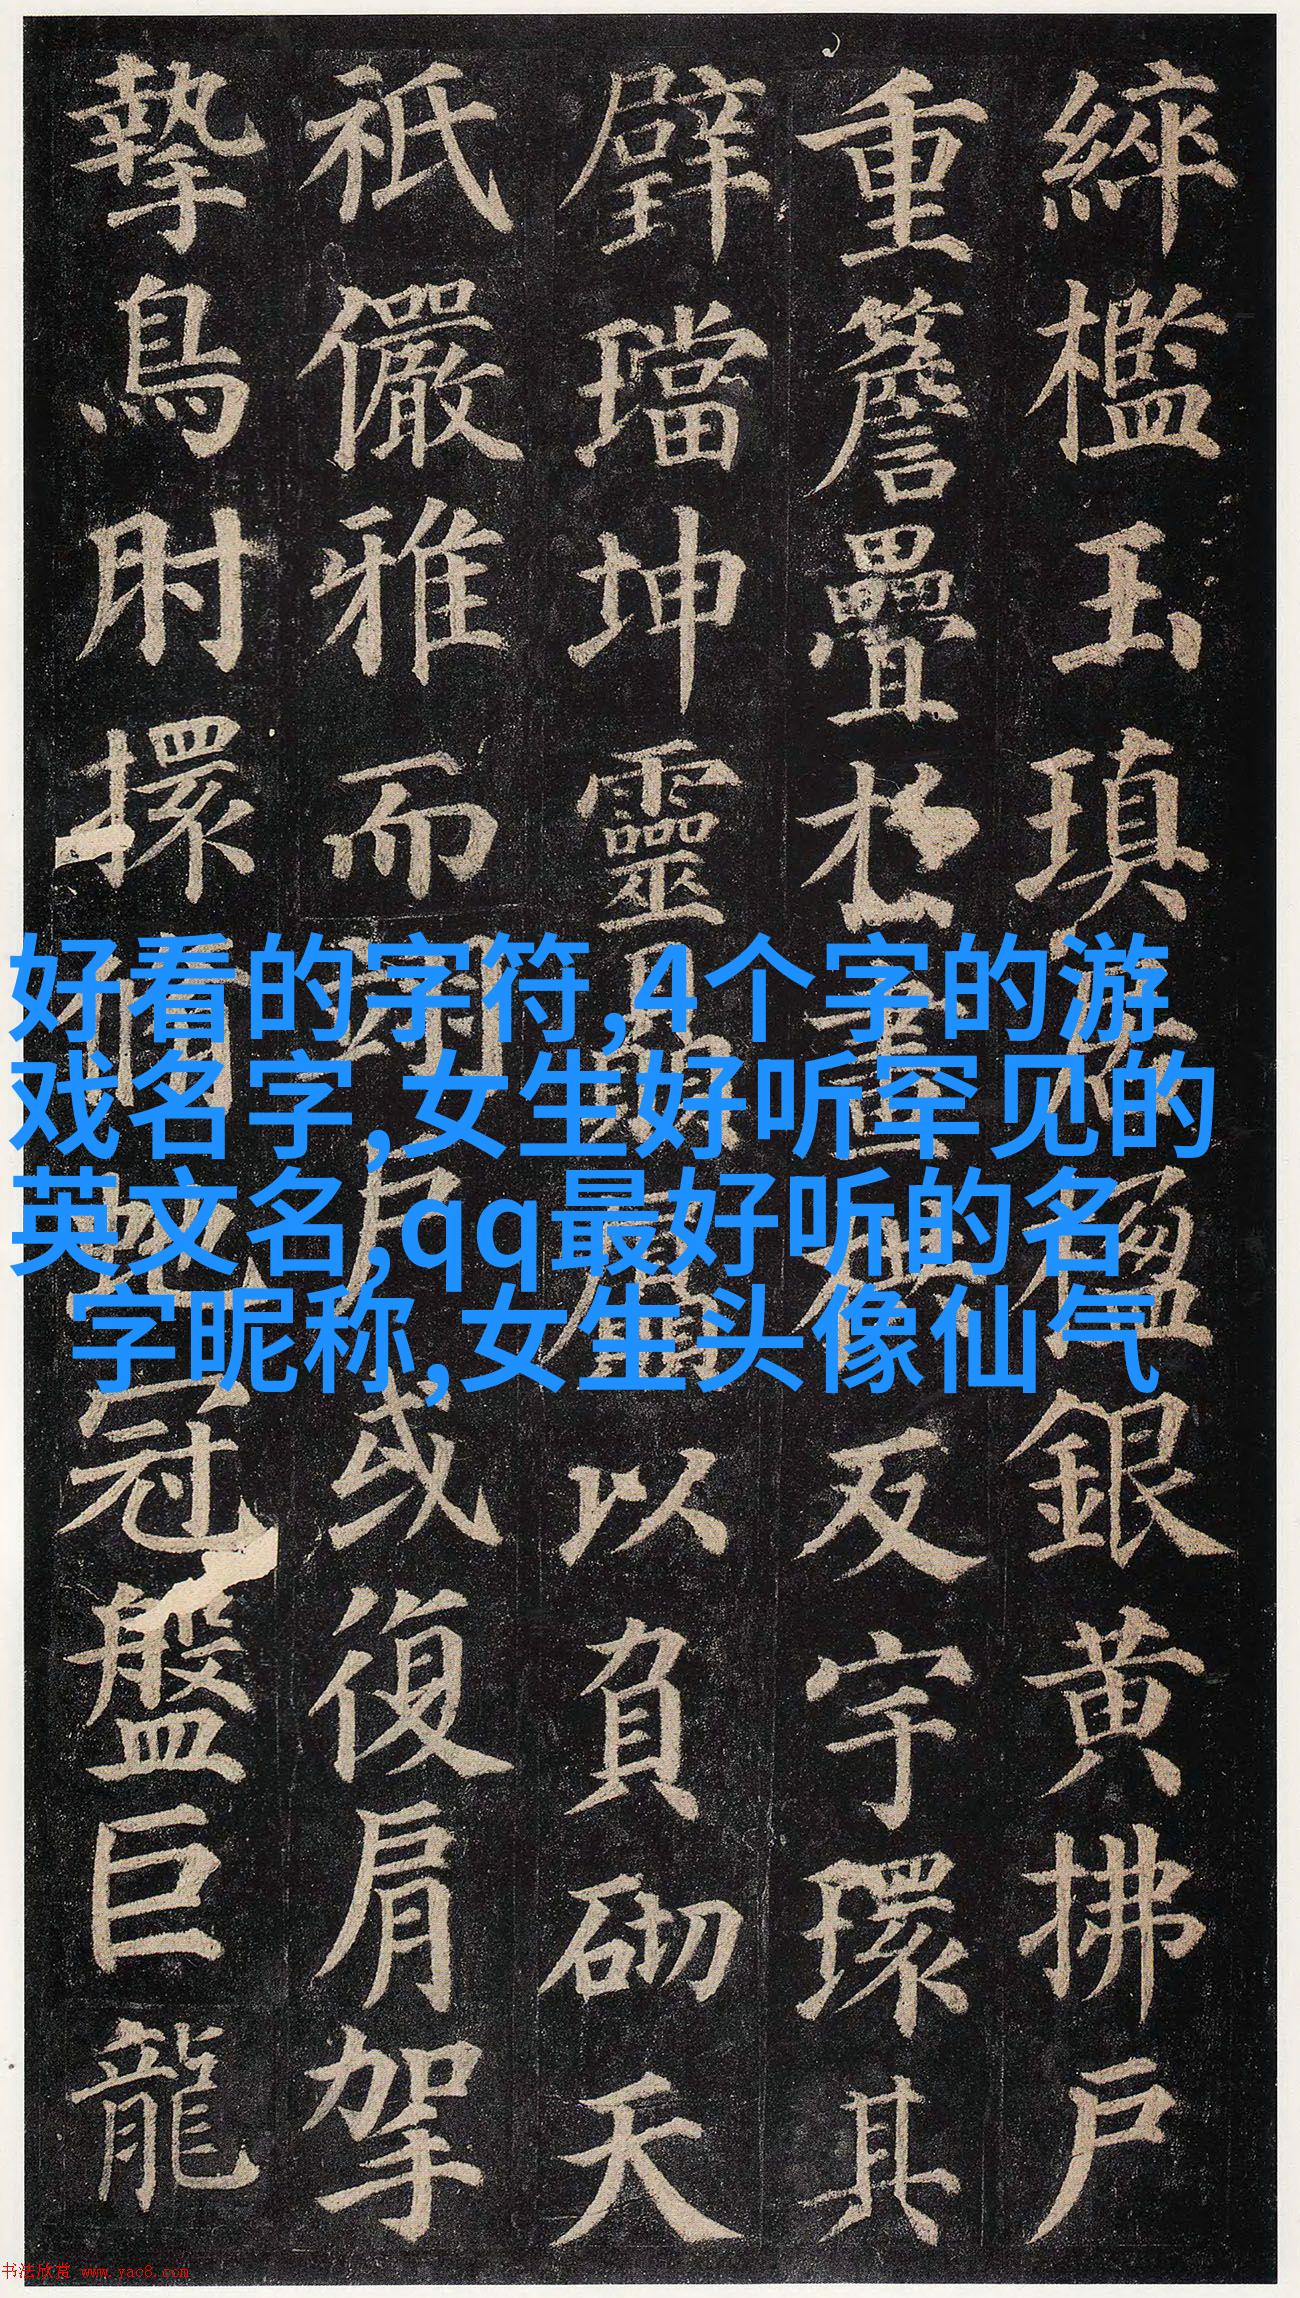 綷檻玉瑱楹銀黄拂戶
重簷疊反宇環其
璧璫坤靈贔屓以負砌天
祇儼雅而翊戶或復肩挐
摯鳥肘擐脩虵冠盤巨龍
好看的字符,4个字的游
戏名字,女生好听罕见的
英文名,qq最好听的名
字昵称,女生头像仙气
书法欣赏 www.yac8.com